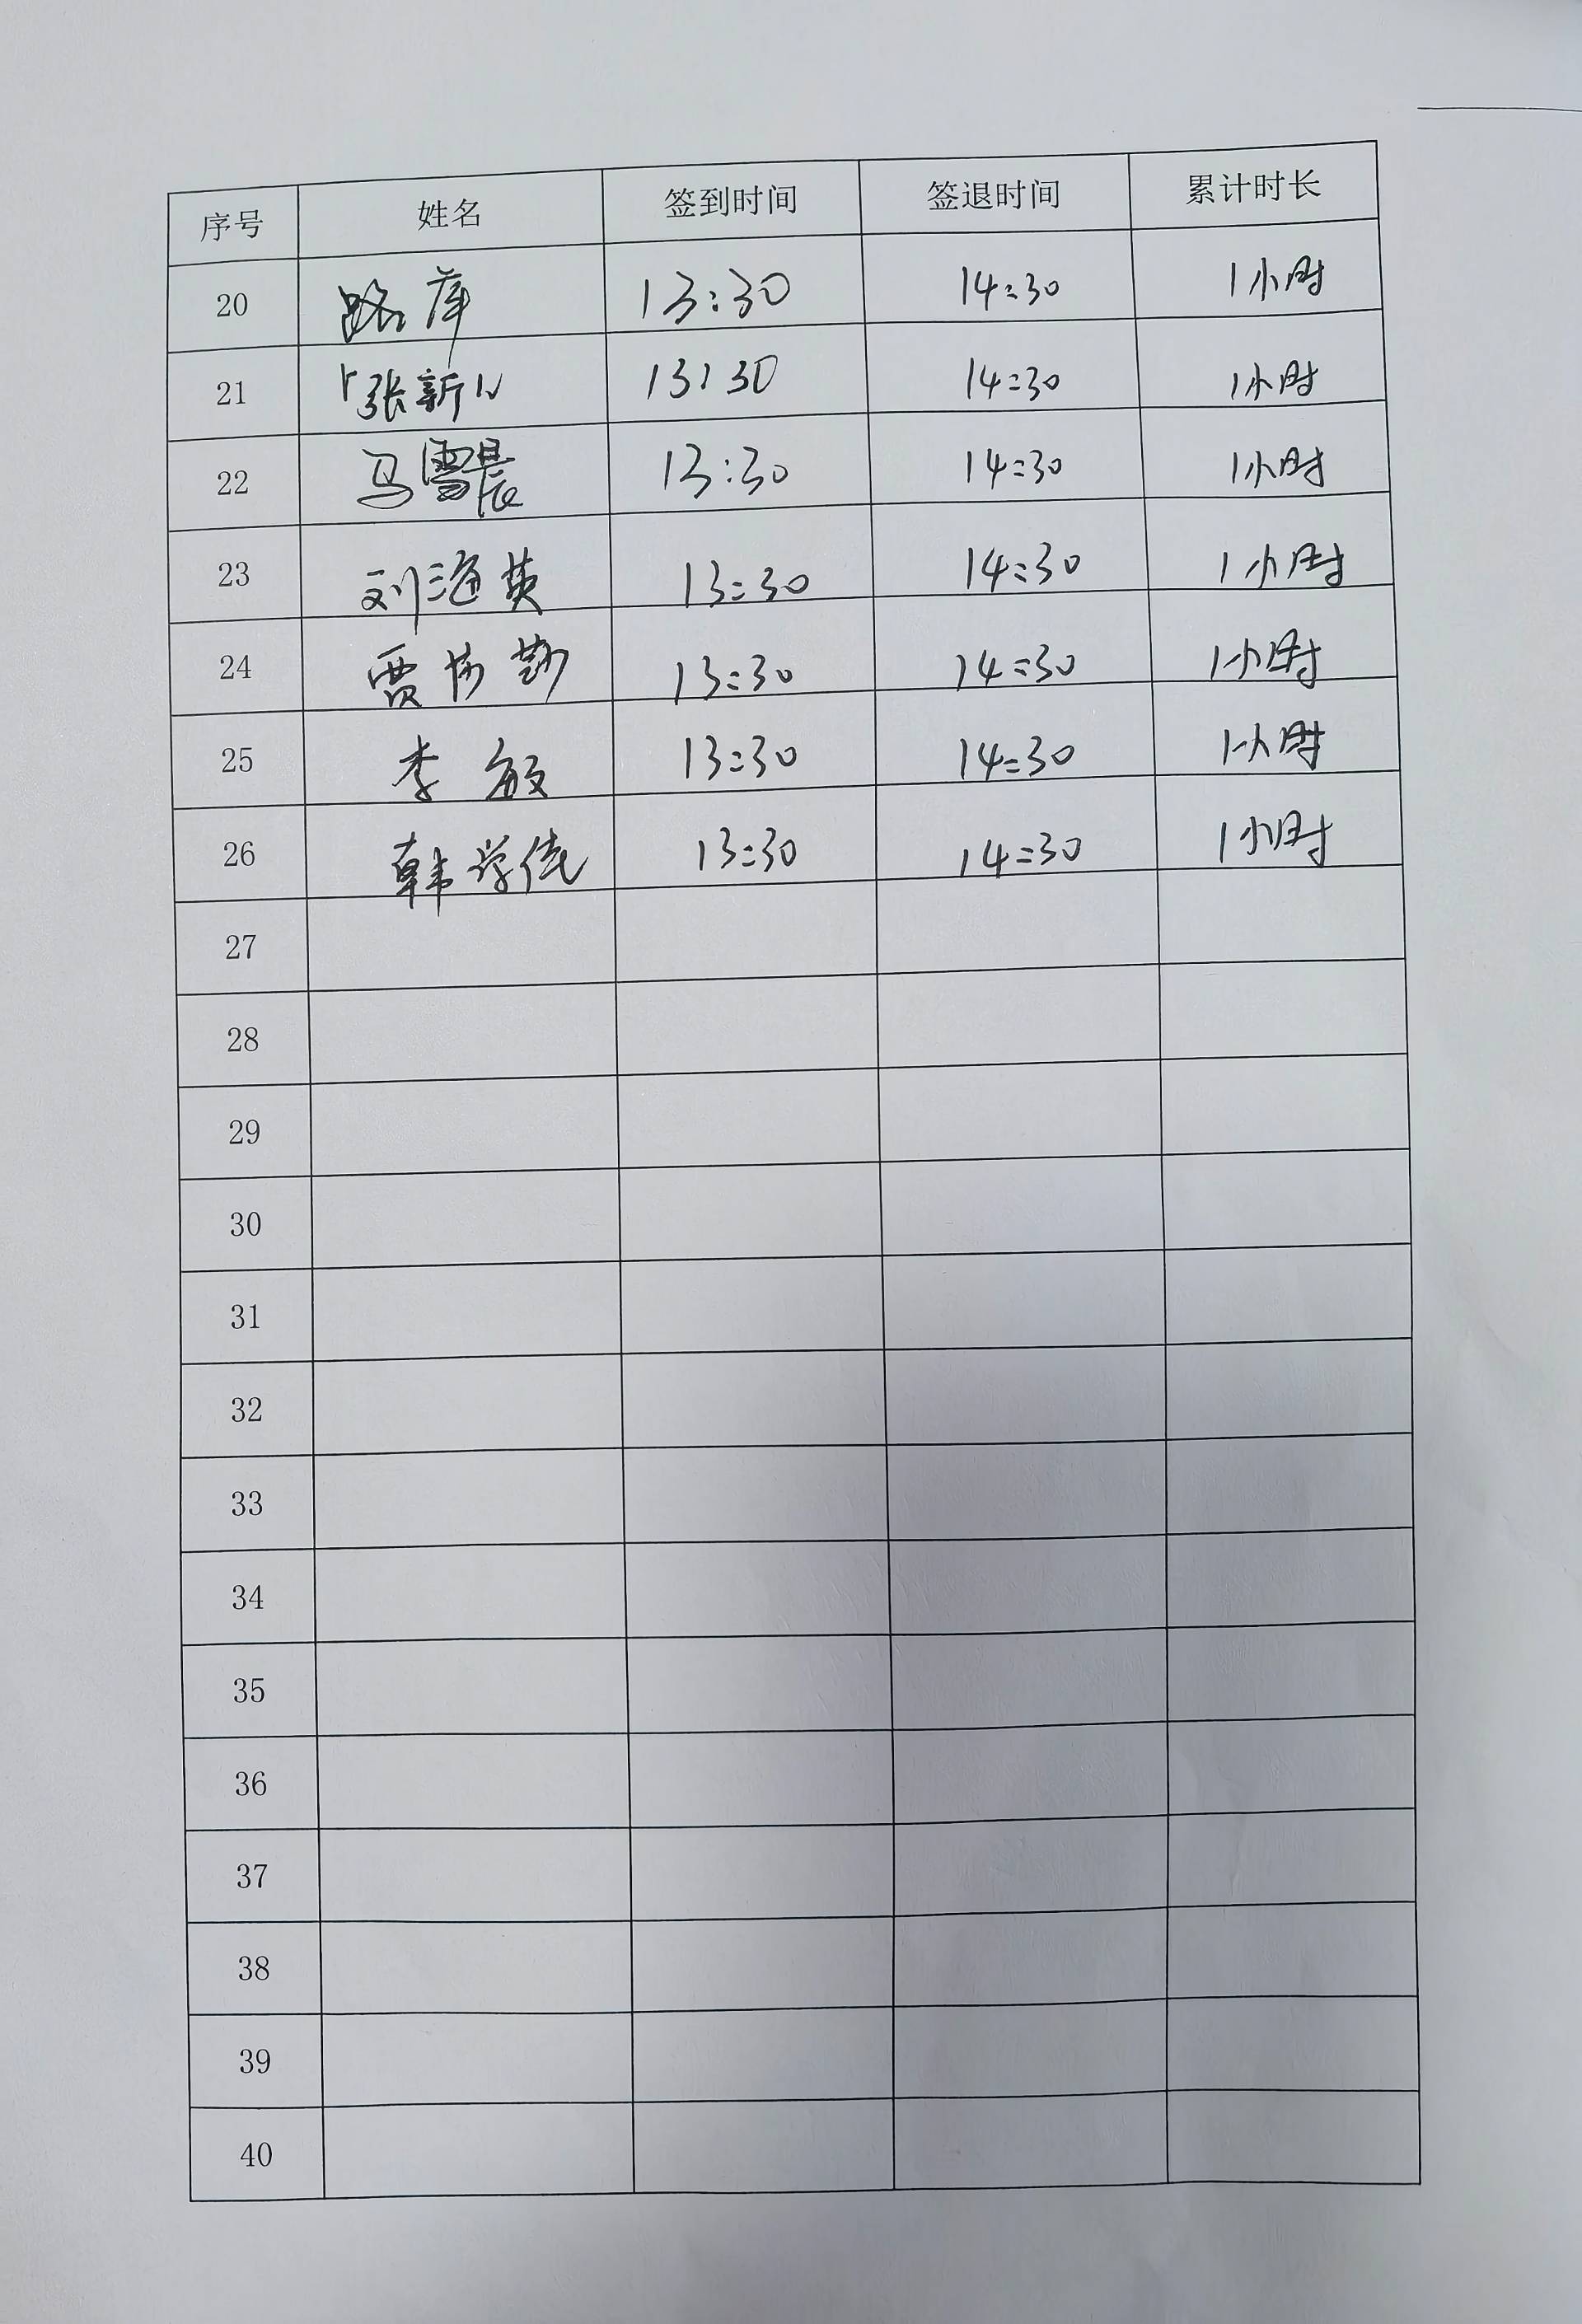 序号 姓名 签到时间 签退时间 累计时长
20 路萍 13:30 14:30 1小时
21 张新 13:30 14:30 1小时
22 马雪晨 13:30 14:30 1小时
23 刘海英 13:30 14:30 1小时
24 贾 13:30 14:30 1小时
25 李敏 13:30 14:30 1小时
26 韩学 13:30 14:30 1小时
27
28
29
30
31
32
33
34
35
36
37
38
39
40